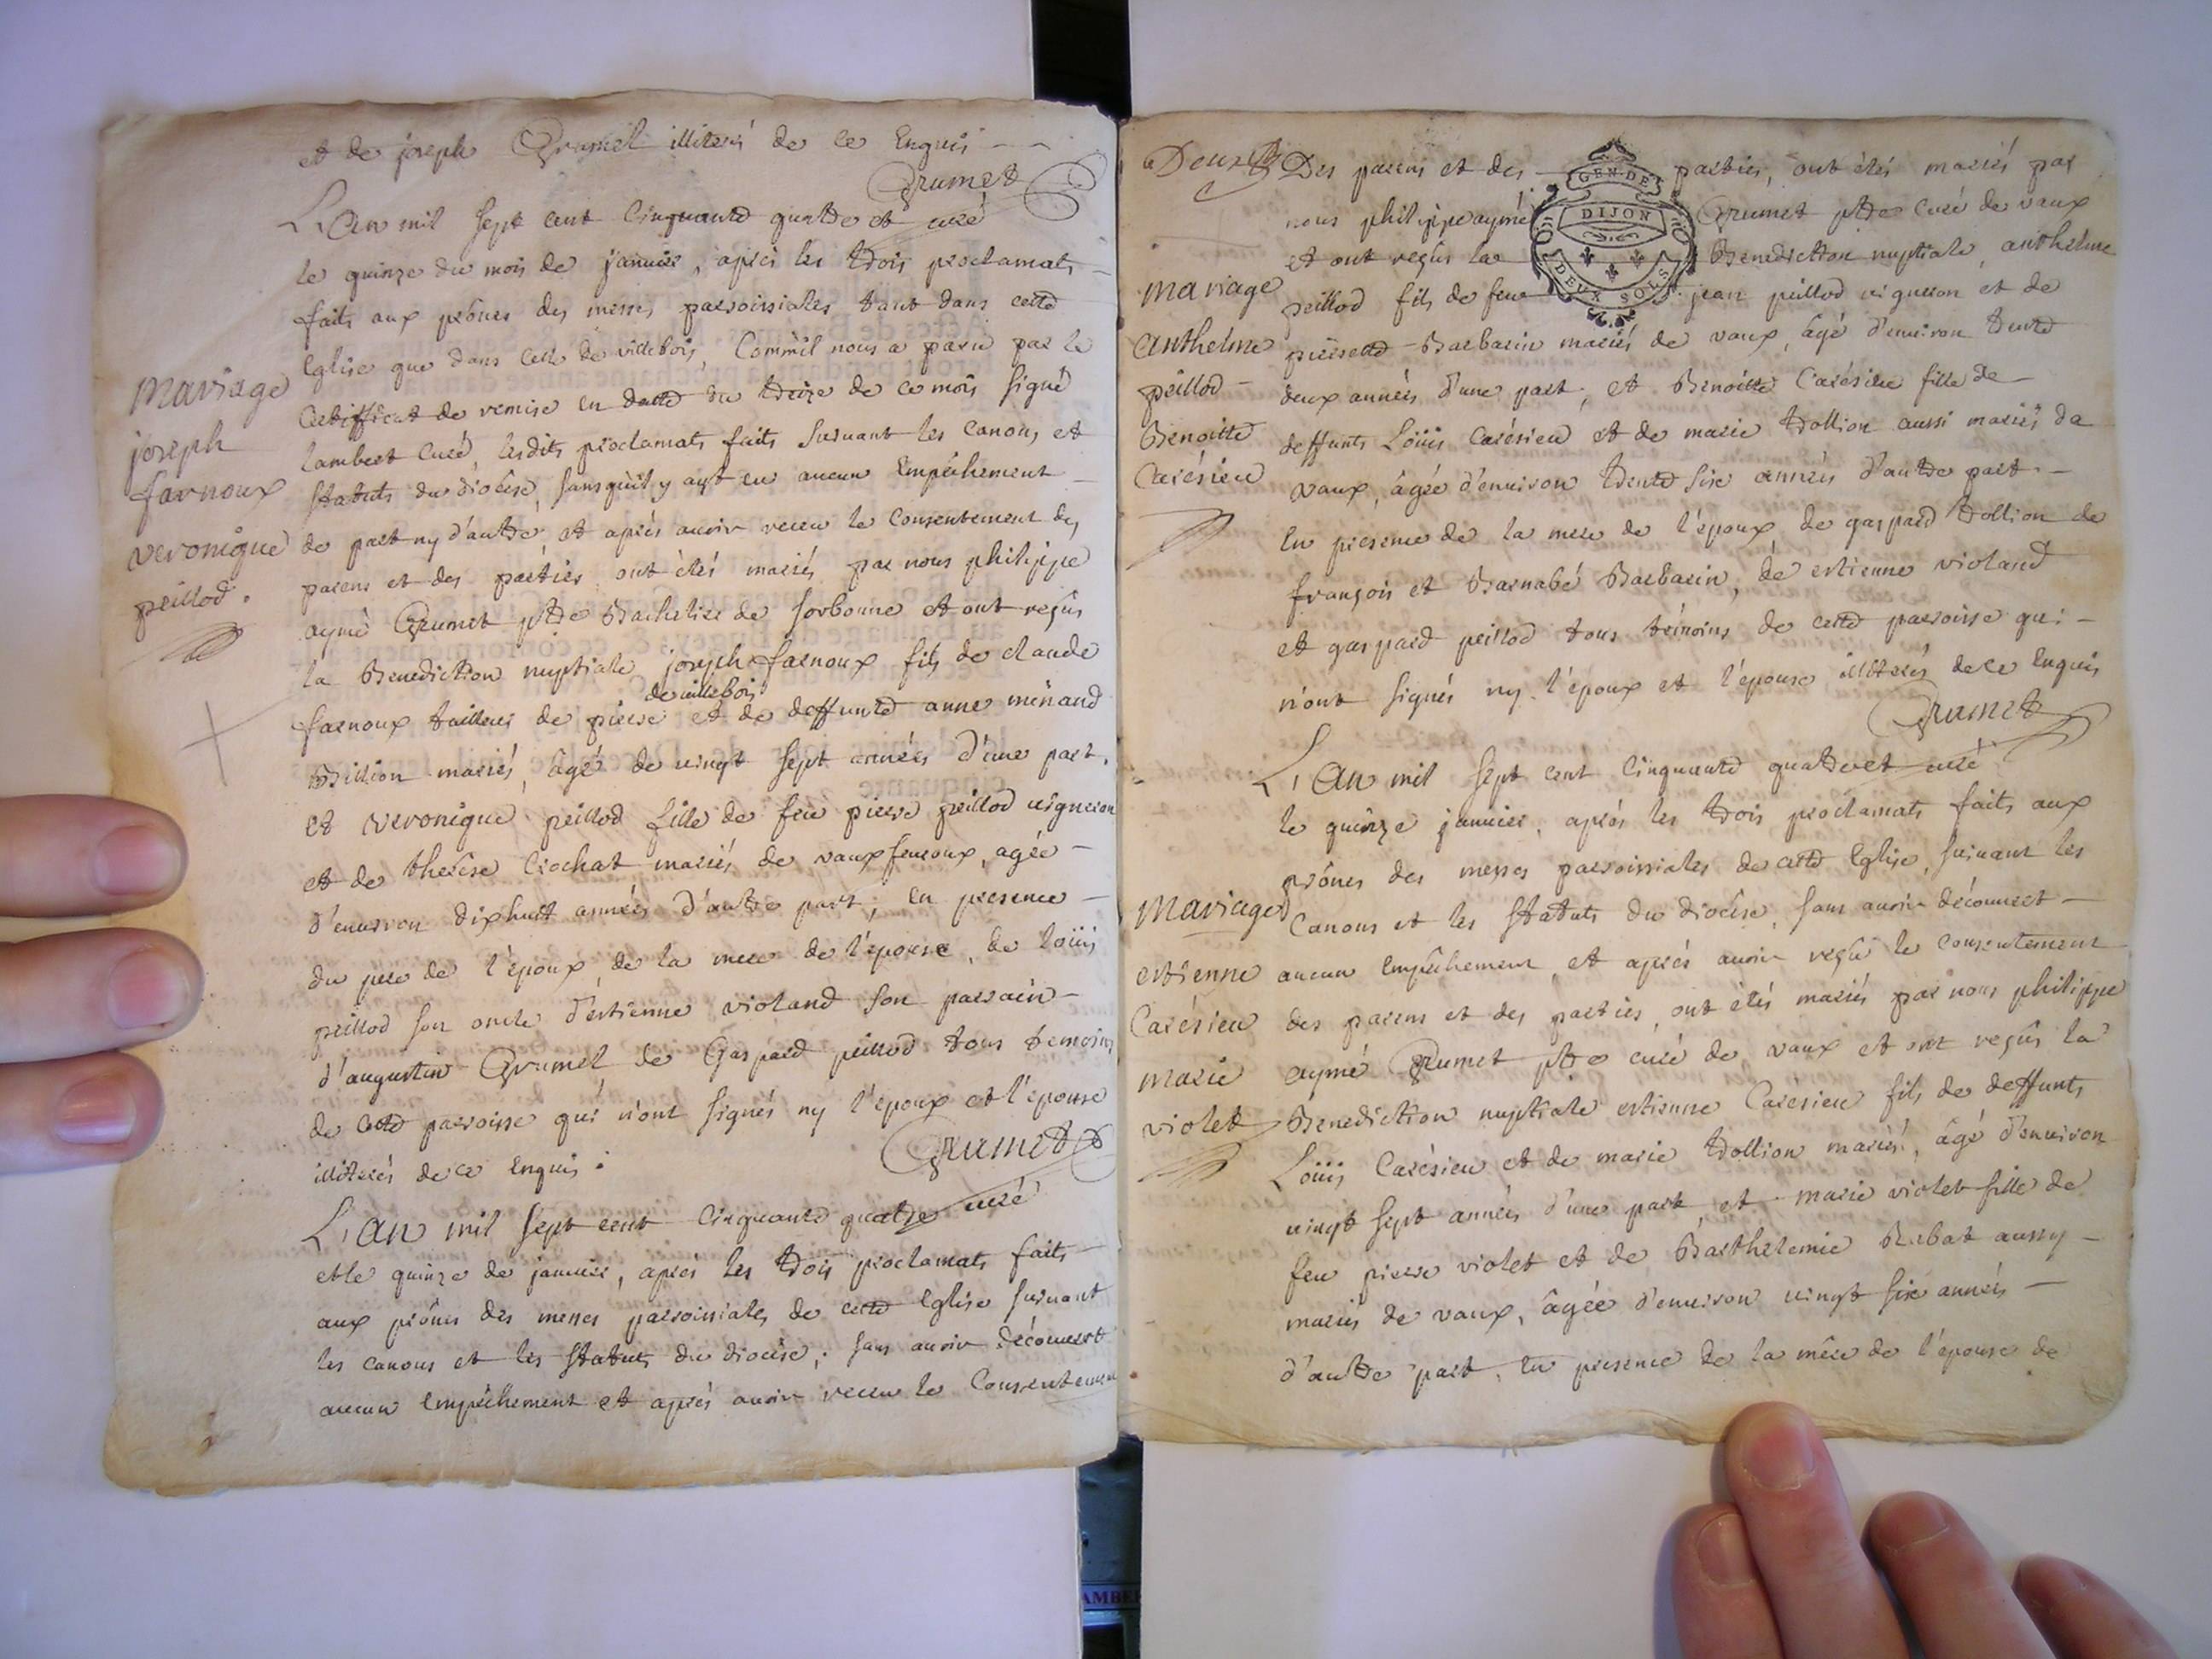 et de joseph Grumel illiterés de ce Enquis - -
Grumet
curé
L'an mil sept cent Cinquante quattre et
le quinze du mois de janvier, aprés les trois proclamats
faits aux prônes des messes parroissiales tant dans cette
Eglise que dans celle de villebois, Comm'il nous a paru par le
Certifficat de remise en datte du treize de ce mois signé
Lambert curé, lesdits proclamats faits suivant les canons et
statuts du diocése, sans qu'il y ayt eu aucun Empêchement
de part ny d'autre, et aprés avoir receu le Consentement des
parens et des parties, ont étés mariés par nous philippe
aymé Grumet ptre Bachelier de sorbonne et ont reçûs
la Benediction nuptiale joseph farnoux fils de claude
de villebois
farnoux tailleur de pierre et de deffunte anne menand
Billion mariés, âgé de vingt sept années d'une part,
et veronique peillod fille de feu pierre peillod vigneron
et de therése Crochat mariés de vaux fevroux, agée
d'environ dixhuit années d'autre part; en presence
du pere de l'époux, de la mere de l'épouse, de loüis
peillod son oncle d'estienne violand son parrain
d'augustin Grumel de Gaspard peillod tous temoins
de cette parroisse qui n'ont signés ny l'époux et l'épouse
illiterés de ce Enquis.
Grumet
curé
L'an mil sept cent Cinquante quatre
et le quinze de janvier, aprés les trois proclamats faits
aux prônes des messes parroissiales de cette Eglise suivant
les canons et les statuts du diocése, sans avoir découvert
aucun Empêchement et aprés avoir receu le Consentement
mariage
joseph
farnoux
veronique
peillod.
Deux
Des parens et des parties, ont étés mariés par
nous philippe aymé Grumet ptre curé de vaux
et ont reçûs la Benediction nuptiale, anthelme
peillod fils de feu jean peillod vigneron et de
pierrette Barbarin mariés de vaux, âgé d'environ trente
deux années d'une part, et Benoitte Carésieu fille de
deffunts Loüis Carésieu et de marie trollion aussi mariés de
vaux, âgée d'environ trente six années d'autre part.
En presence de la mere de l'époux, de gaspard trollion de
françois et Barnabé Barbarin, de estienne violand
et gaspard peillod tous témoins de cette parroisse qui
n'ont signés ny l'époux et l'épouse illiterés de ce Enquis
Grumet
curé
L'an mil sept cent Cinquante quatre et
le quinze janvier, aprés les trois proclamats faits aux
prônes des messes parroissiales de cette Eglise, suivant les
Canons et les statuts du diocése, sans avoir découvert
aucun Empêchement, et aprés avoir reçû le Consentement
des parens et des parties, ont étés mariés par nous philippe
aymé Grumet ptre curé de vaux et ont reçûs la
Bénediction nuptiale estienne Carésieu fils de deffunts
Loüis Carésieu et de marie trollion mariés, âgé d'environ
vingt sept années d'une part, et marie violet fille de
feu pierre violet et de Barthelemie Rubat aussy
mariés de vaux, âgée d'environ vingt six années
d'autre part, en presence de la mére de l'épouse de
mariage
anthelme
peillod
Benoitte
Carésieu
mariage
estienne
Carésieu
marie
violet
GEN DE
DIJON
DEUX SOLS